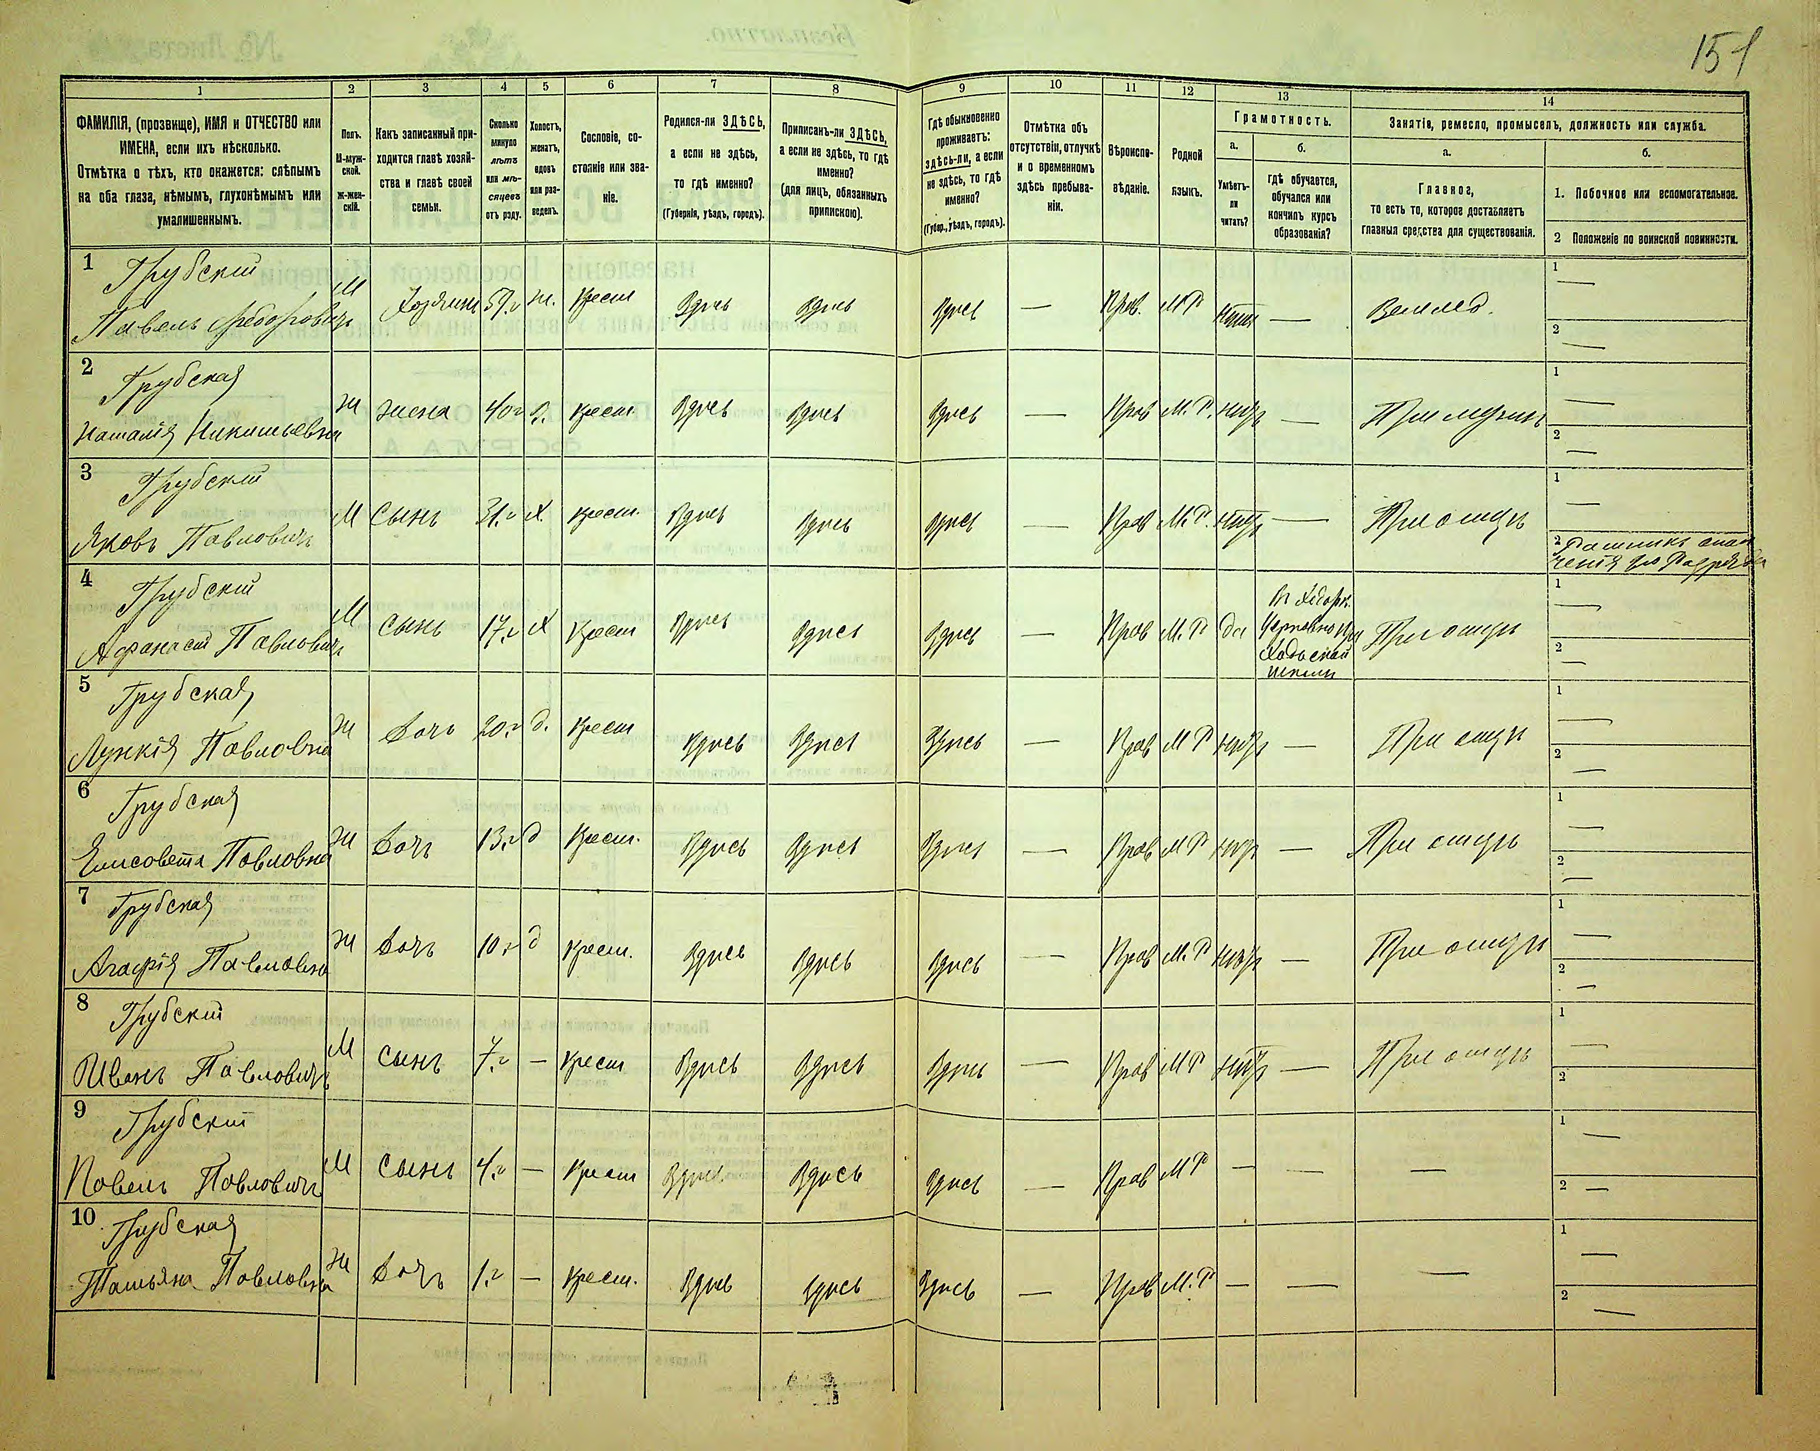 151
1
2
3
4
5
6
7
8
9
10
11
12
13
14
ФАМИЛІЯ, (прозвище), ИМЯ и ОТЧЕСТВО или
ИМЕНА, если ихъ нѣсколько.
Отмѣтка о тѣхъ, кто окажется: слѣпымъ
на оба глаза, нѣмымъ, глухонѣмымъ или
умалишеннымъ.
Полъ.
М-муж-
ской.
Ж-жен-
скій.
Какъ записанный при-
ходится главѣ хозяй-
ства и главѣ своей
семьи.
Сколько
минуло
лѣтъ
или мѣ-
сяцевъ
отъ роду.
Холостъ,
женатъ,
вдовъ
или раз-
веденъ.
Сословіе, со-
стояніе или зва-
ніе.
Родился-ли ЗДѢСЬ,
а если не здѣсь,
то гдѣ именно?
(Губернія, уѣздъ, городъ).
Приписанъ-ли ЗДѢСЬ,
а если не здѣсь, то гдѣ
именно?
(для лицъ, обязанныхъ
припискою).
Гдѣ обыкновенно
проживаетъ:
здѣсь-ли, а если
не здѣсь, то гдѣ
именно?
(Губер., уѣздъ, городъ).
Отмѣтка объ
отсутствіи, отлучкѣ
и о временномъ
здѣсь пребыва-
ніи.
Вѣроиспо-
вѣданіе.
Родной
языкъ.
Грамотность.
а.
Умѣетъ-
ли
читать?
б.
гдѣ обучается,
обучался или
кончилъ курсъ
образованія?
Занятіе, ремесло, промыселъ, должность или служба.
а.
Главное,
то есть то, которое доставляетъ
главныя средства для существованія.
б.
1. Побочное или вспомогательное.
2 Положеніе по воинской повинности.
1 Грубскій
Павелъ Федоровичъ М Хозяинъ 59.г ж. Крест Здѣсь Здѣсь Здѣсь — Прав. М Р — Землед. 1 — 2 —
2 Грубская
Наталія Никитьевна Ж жена 40 г Крест Здѣсь Здѣсь Здѣсь — Прав М. Р. нѣтъ — При мужѣ 1 — 2 —
3 Грубскій
Яковъ Павловичъ М сынъ 31.г Х. Крест. Здѣсь Здѣсь Здѣсь — Прав М. Р. нѣтъ — При отцѣ 1 — 2 Ратникъ опол
ченія Разряда
4 Грубскій
Афанасій Павловичъ М сынъ 17.г Х Крест Здѣсь Здѣсь Здѣсь — Прав М. Р да
Церковно При
ходской
школѣ
При отцѣ 1 — 2 —
5 Грубская
Лукія Павловна Ж дочь 20.г д. Крест Здѣсь Здѣсь Здѣсь — Прав М Р нѣтъ — При отцѣ 1 — 2 —
6 Грубская
Елисовета Павловна Ж дочь 13.г д Крест. Здѣсь Здѣсь Здѣсь — Прав М Р нѣтъ — При отцѣ 1 — 2 —
7 Грубская
Агафія Павловна Ж дочь 10.г д Крест. Здѣсь Здѣсь Здѣсь — Прав М. Р нѣтъ — При отцѣ 1 — 2 —
8 Грубскій
Иванъ Павловичъ М сынъ 7.г — Крест Здѣсь Здѣсь Здѣсь — Прав М Р нѣтъ — При отцѣ 1 — 2 —
9 Грубскій
Павелъ Павловичъ М сынъ 4.г — Крест Здѣсь Здѣсь Здѣсь — Прав М Р — — — 1 — 2 —
10 Грубская
Татьяна Павловна Ж дочь 1.г — Крест. Здѣсь Здѣсь Здѣсь — Прав М. Р — — — 1 — 2 —